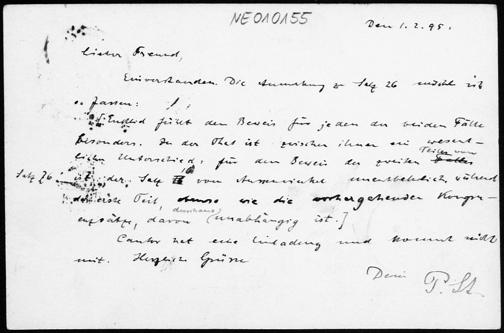 NE010155
Den 1.2.95.
Lieber Freund,
Einverstanden. Die Anmerkung zu Satz 26 möchte ich
so fassen:
[Euklid führt den Beweis für jeden der beiden Fälle
besonders. In der That ist zwischen ihnen ein wesent-
licher Unterschied; für den Beweis des zweiten Teiles von
Satz 26 ist der Satz 16 vom Aussenwinkel unentbehrlich während
der erste Teil, ebenso wie die vorhergehenden Kongru-
enzsätze, davon (durchaus) unabhängig ist.]
Cantor hat eine Einladung und kommt nicht
mit. Herzliche Grüsse
Dein P. St.